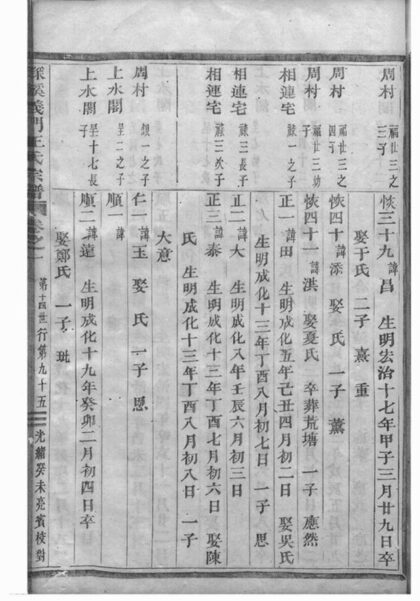 周村 福廿三之三子 恢三十九諱昌 生明宏治十七年甲子三月廿九日卒
娶于氏 二子 熹 重
周村 福廿三之四子 恢四十諱添 娶 氏 一子 薰
周村 福廿三幼子 恢四十一諱洪 娶夏氏 卒葬荒塘 一子 應然
相連宅 諫一之子 正一諱田 生明成化五年己丑四月初二日 娶吳氏
生明成化十三年丁酉八月初七日 一子 恩
相連宅 諫三長子 正二諱大 生明成化八年壬辰六月初三日
相連宅 諫三次子 正三諱泰 生明成化十三年丁酉七月初六日 娶陳
氏 生明成化十三年丁酉八月初八日 一子
大意
周村 銀一之子 仁一諱玉 娶 氏 一子 恩
上水閣 呈二之子 順一諱
上水閣 呈十七長子 順二諱遠 生明成化十九年癸卯二月初四日卒
娶鄭氏 一子 珷
義門王氏宗譜 卷之二 第十四世行第九十五 光緒癸未亮賓校對